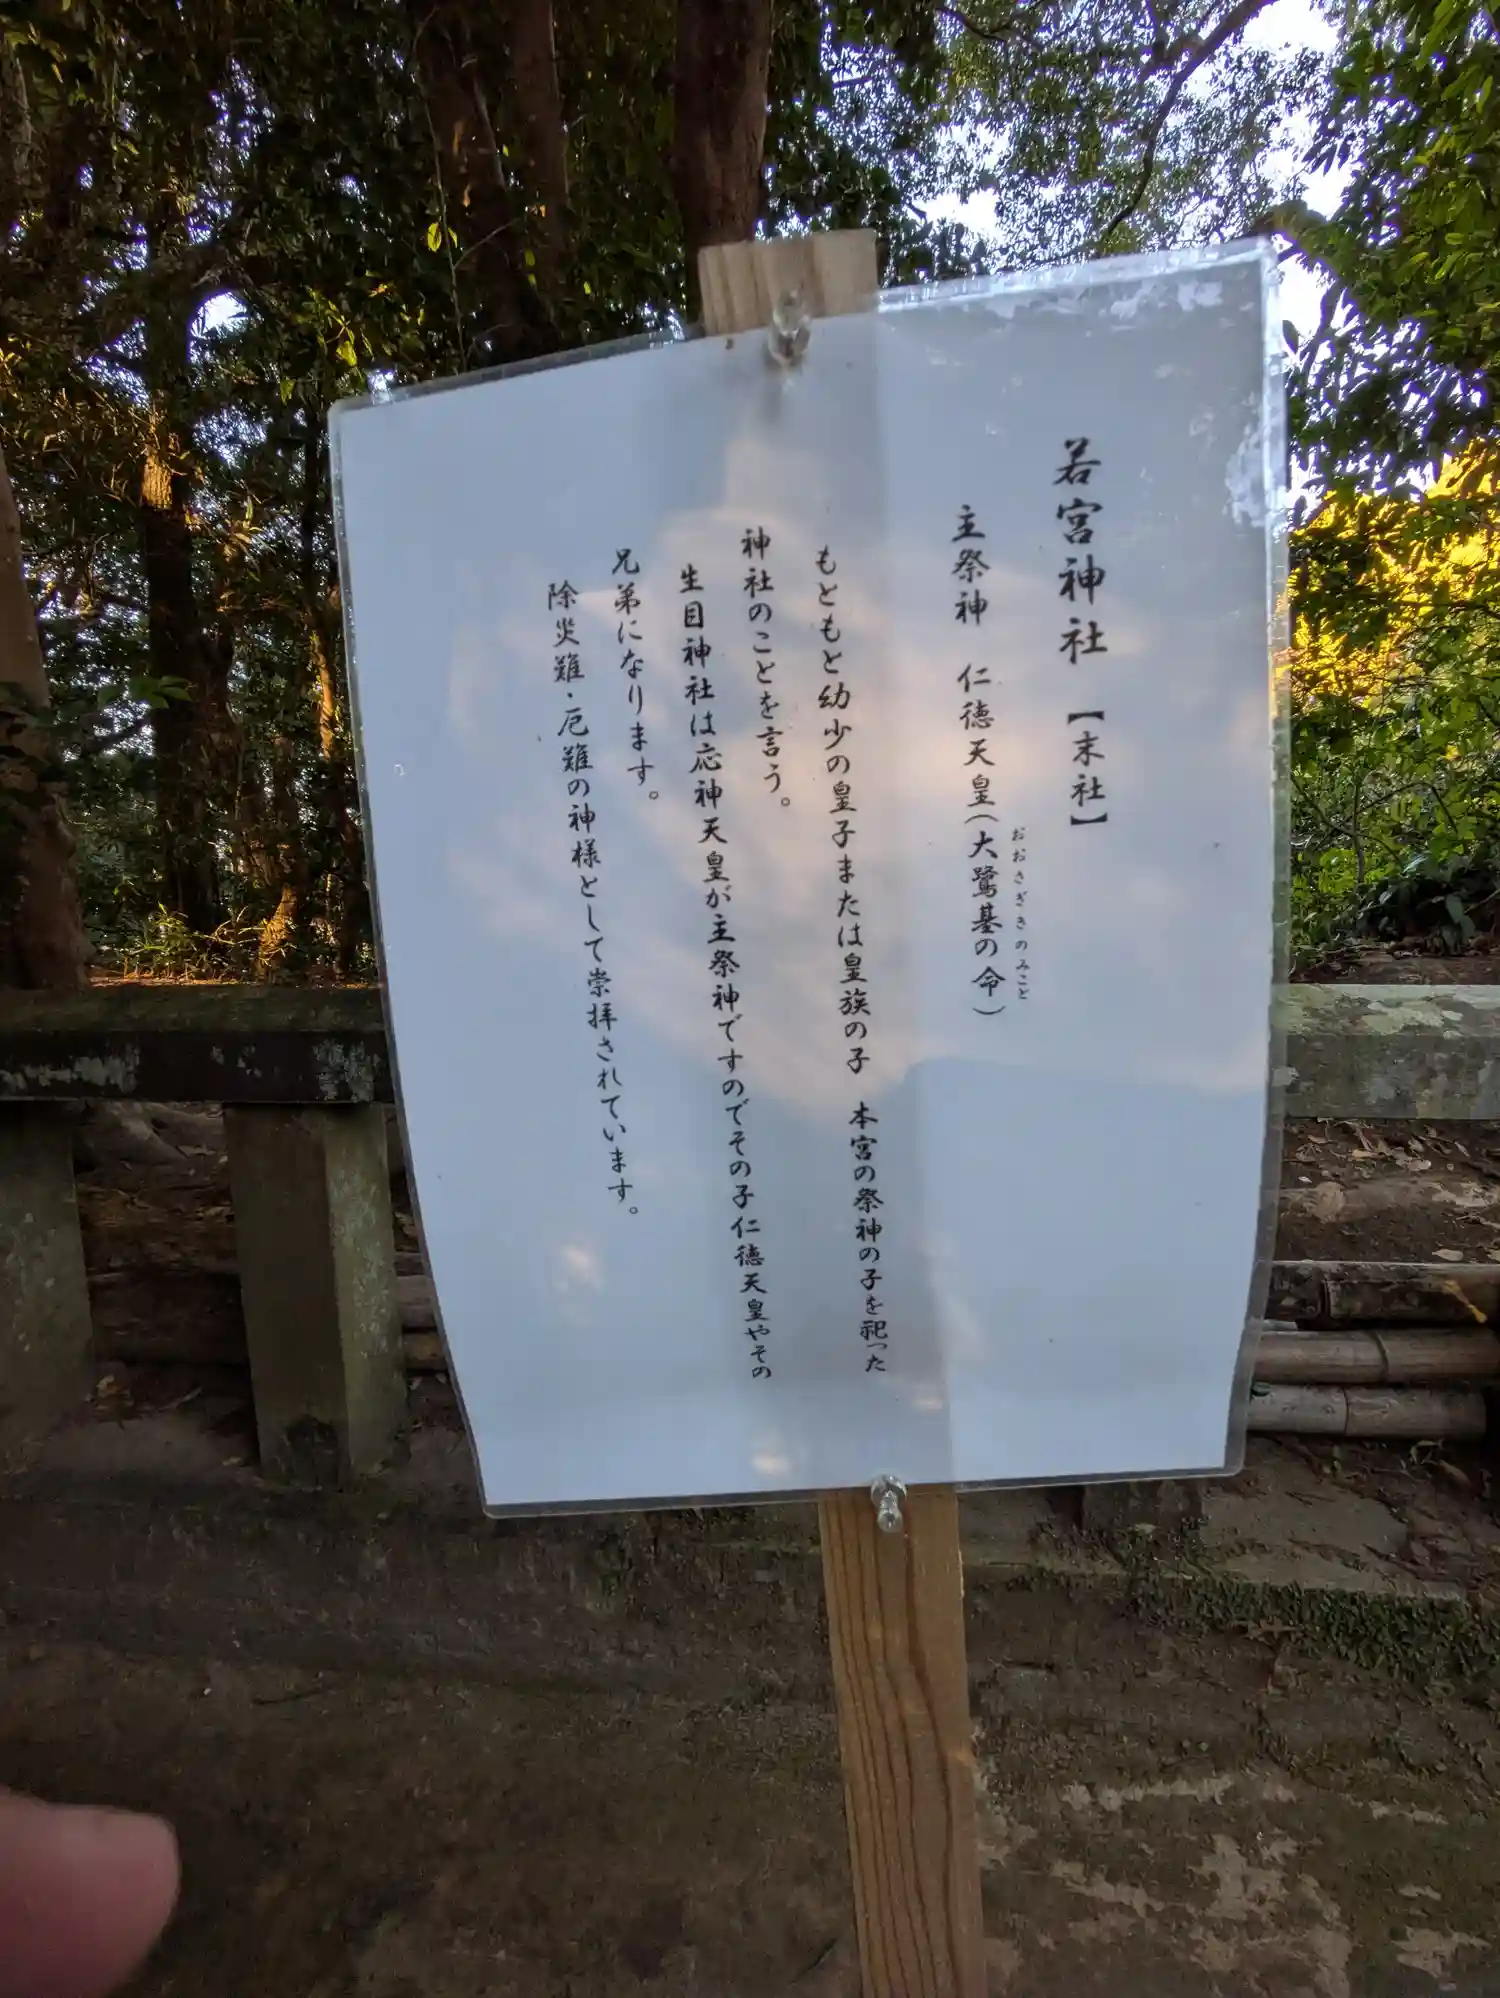 若宮神社【末社】
主祭神 仁徳天皇(大鷺基の命)
おおさぎきのみこと
もともと幼少の皇子または皇族の子 本宮の祭神の子を祀った
神社のことを言う。
生目神社は応神天皇が主祭神ですのでその子仁徳天皇やその
兄弟になります。
除災難・厄難の神様として崇拝されています。